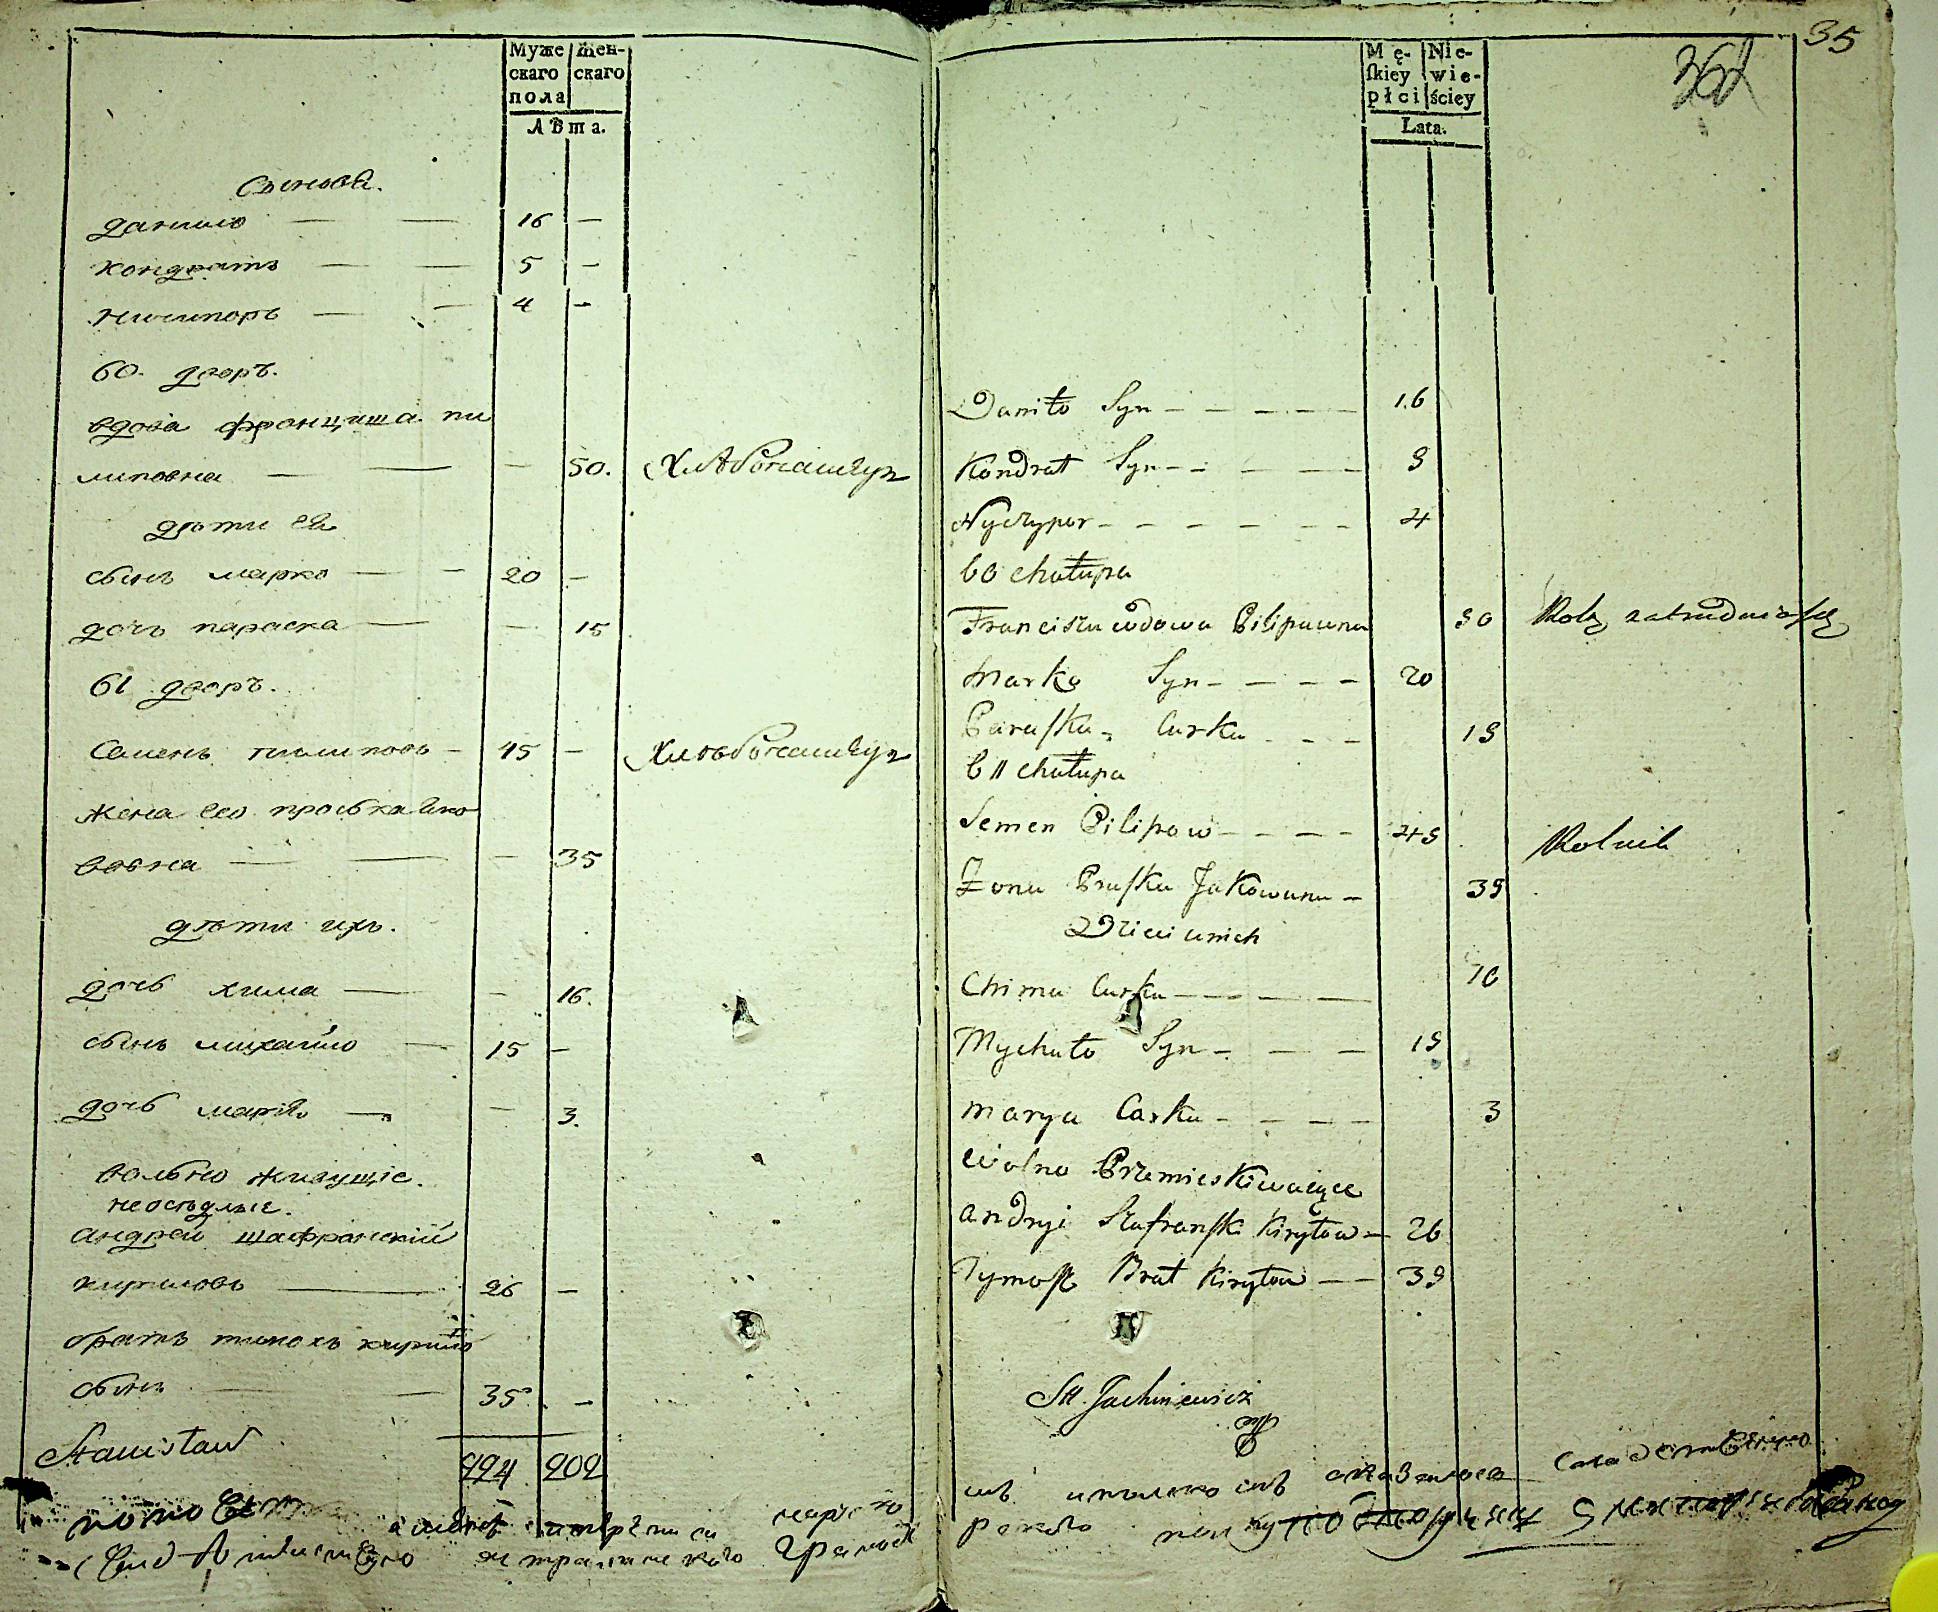 Муже Жен-
скаго скаго
пола
Лѣта.
Сынове.
данило — — 16 —
кондратъ — — 5 —
ничипоръ — — 4 —
60. дворъ.
вдова францишка пи
липовна — — — 50. Хлѣбопашецъ
дѣти еѣ
сынъ марко — — 20 —
дочь параска — — 15
61 дворъ.
Семенъ пилиповъ — 45 — Хлѣбопашецъ
жена его проська яко
вовна — — — 35
дѣти ихъ.
дочь хима — — 16.
сынъ михайло — 15 —
дочь маря — — 3.
вольно живущіе.
неоседлые.
андрей шафранскій
кириловъ — 26 —
братъ тимохъ кирило
сынъ — — 35 —
Stanisław
224 202
35
362
Mę- Nie-
skiey wie-
płci ściey
Lata.
Daniło Syn — — — — 16
Kondrat Syn — — — — 5
Nyczypor — — — — — — 4
60 chałupa
Franciszka wdowa Pilipowna 50 Rolą zatrudnia się
Marko Syn — — — — 20
Paraska Curka — — — 15
611 chałupa
Semen Pilipow — — — — 45 Rolnik
Zona Praska Jakowuna — 35
Dzieci onich
Chima Curka — — — — 16
Mychało Syn — — — 15
Marya Curka — — — — 3
Wolno Przemieskiwaiące
andryi Szafranski Kiryłow — 26
Tymosz Brat Kiryłow — — 35
St. Jachniewicz